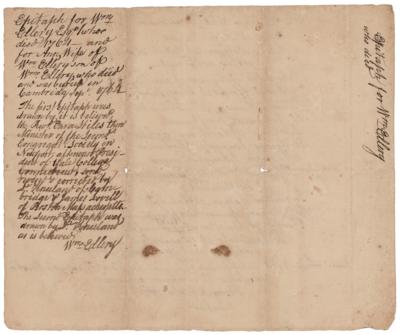 Epitaph for Wm
Ellery Esqr. who
died 1764 — and
for Ann Wife of
Wm Ellery son of
Wm Ellery, who died
and was buried in
Cambridge 1764
The first Epitaph was
drawn by it is believed
the Revd. Ezra Stiles then
Minister of the Second
Congregl. Society in
Newport, afterward Presi-
dent of Yale College
Connecticut and
revised & corrected by
of Cam-
bridge & James Lovell
of Boston Massachusetts
The Second Epitaph was
drawn by
as is believed
Wm Ellery
Epitaph for Wm Ellery
who died